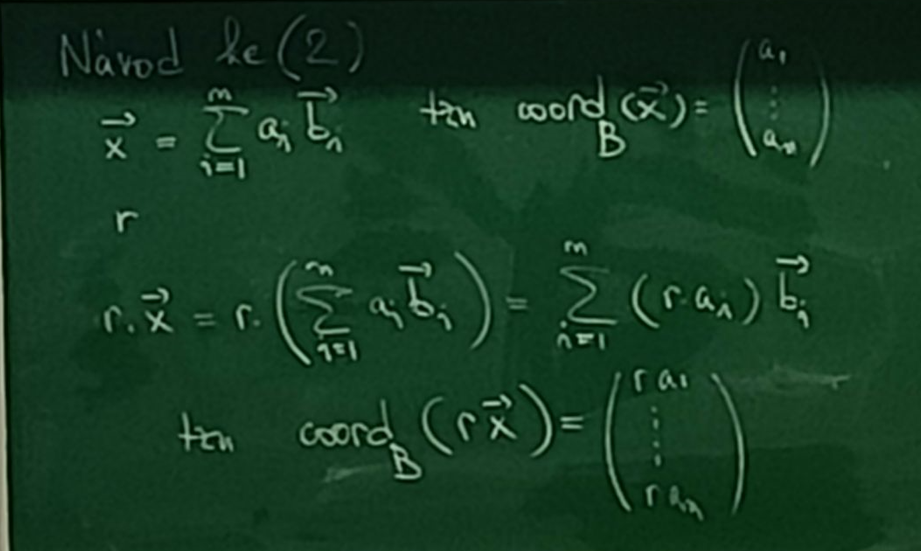 Návod ke (2)
$\vec{x} = \sum_{i=1}^{n} a_i \vec{b_i}$ tzn $\text{coord}_B(\vec{x}) = \begin{pmatrix} a_1 \\ \vdots \\ a_n \end{pmatrix}$
r
$r \cdot \vec{x} = r \cdot \left( \sum_{i=1}^{n} a_i \vec{b_i} \right) = \sum_{i=1}^{n} (r \cdot a_i) \vec{b_i}$
tzn $\text{coord}_B(r\vec{x}) = \begin{pmatrix} r a_1 \\ \vdots \\ r a_n \end{pmatrix}$